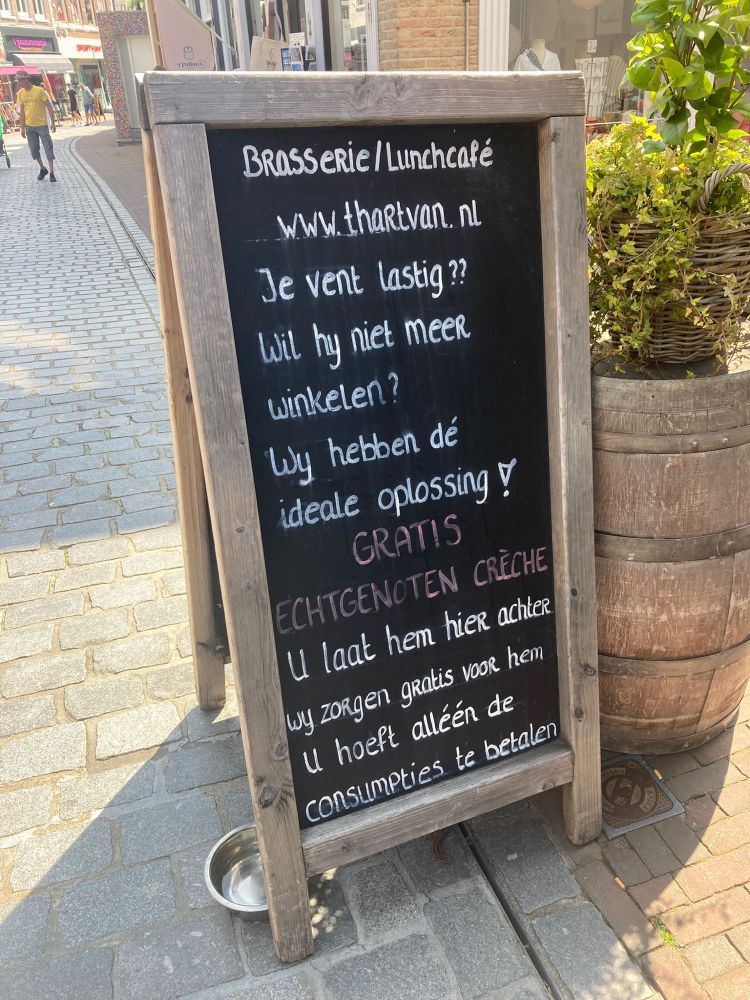 Brasserie/Lunchcafé
www.thartvan.nl
Je vent lastig??
Wil hy niet meer
winkelen?
Wy hebben dé
ideale oplossing!
GRATIS
ECHTGENOTEN CRÈCHE
U laat hem hier achter
wy zorgen gratis voor hem
U hoeft alléén de
consumpties te betalen